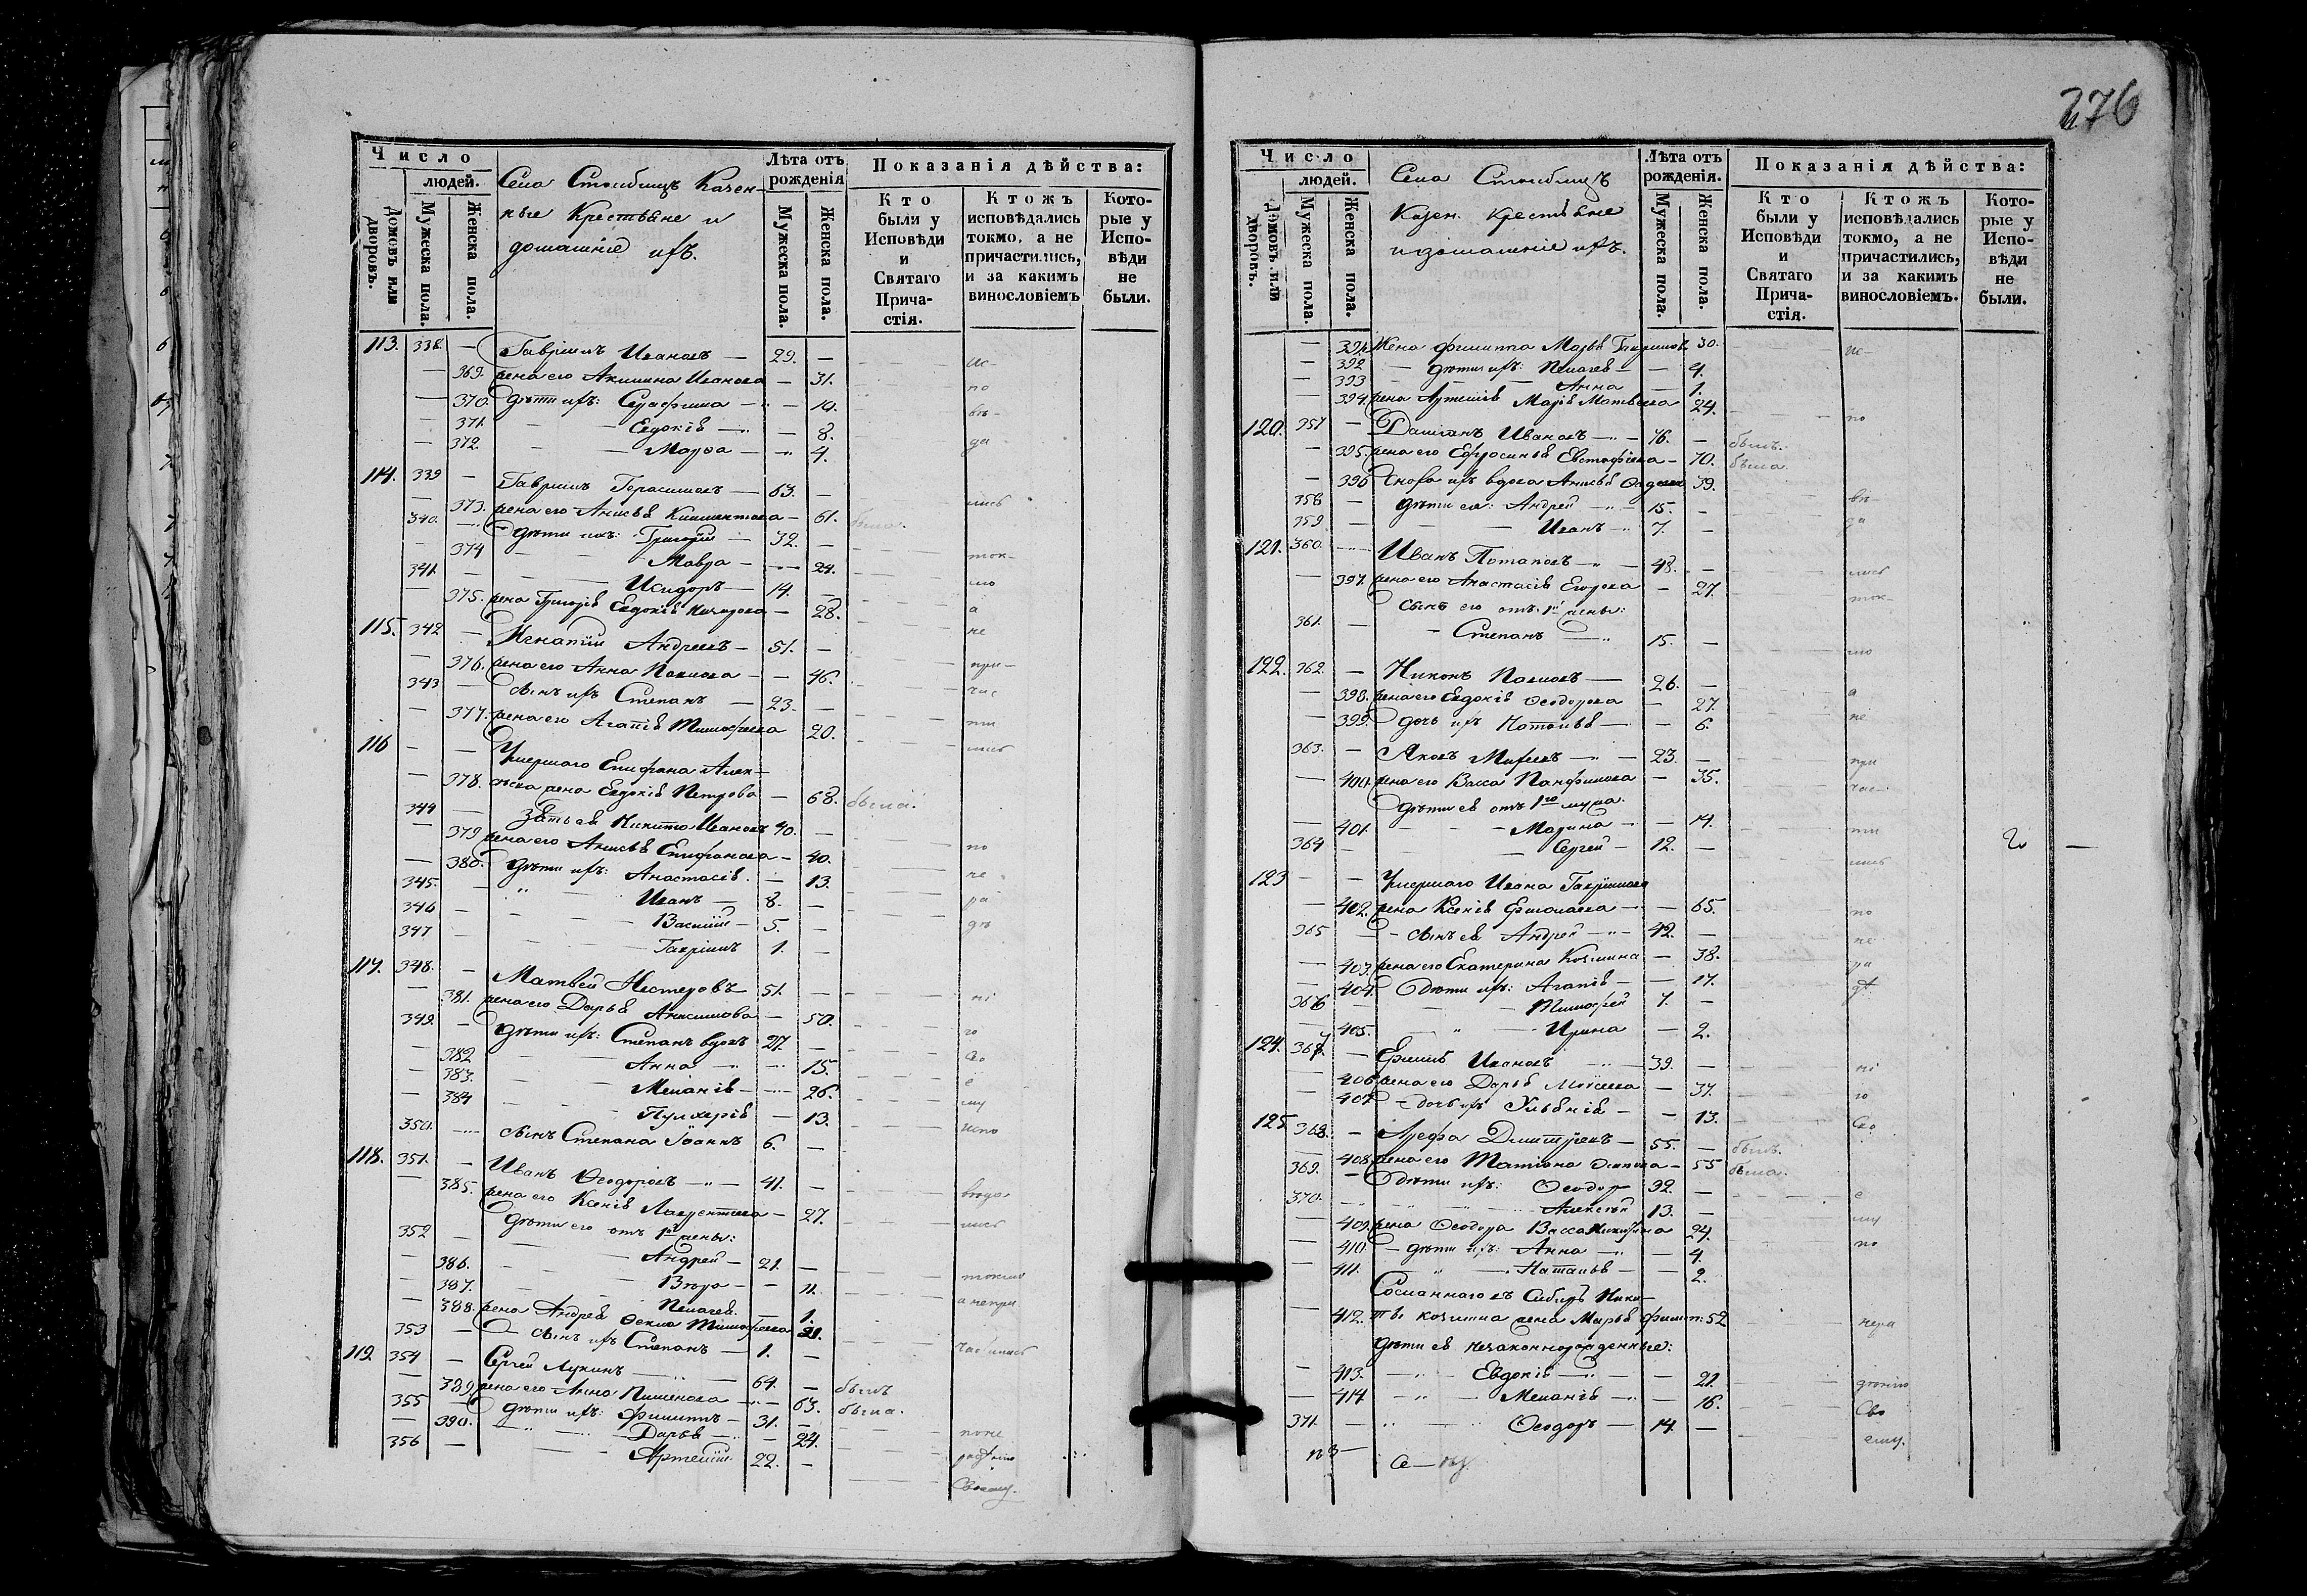 276
Число
людей.
Домовъ или дворовъ.
Мужеска пола.
Женска пола.
Села Столбищъ Казен-
ные Крестьяне и
домашніе ихъ.
Лѣта отъ рожденія
Мужеска пола.
Женска пола.
Показанія дѣйства:
Кто были у Исповѣди и Святаго Причастія.
Ктожъ исповѣдались токмо, а не причастились, и за какимъ винословіемъ
Которые у Исповѣди не были.
113. 338. — Гавріилъ Ивановъ — 29. —
— 369. жена его Акилина Иванова — 31.
— 370. дѣти ихъ: Серафима — 10.
371. Евдокія — 8.
372. Марѳа — 4.
114. 339 — Гавріилъ Герасимовъ — 63. —
— 373. жена его Анисья Климентова — 61. была.
340. — дѣти ихъ: Григорій — 32. —
374 Мавра — 24.
341. — Исидоръ — 14. —
— 375. жена Григорія Евдокія — 28.
115. 342 — Игнатій Андреевъ — 51. —
— 376. жена его Анна Павлова — 46.
343 — сынъ ихъ Степанъ — 23. —
— 377. жена его Агапія Тимоѳеева 20.
116 — — Умершаго Епифана Алек-
— 378. сѣева жена Евдокія Петрова — 68. была.
344 — Зять ея Никита Ивановъ 40. —
— 379 жена его Анисья Епифанова — 40.
— 380. дѣти ихъ: Анастасія — 13.
345. — Иванъ — 8. —
346 — Василій — 5. —
347 — Гавріилъ 1. —
117. 348. — Матвей Нестеровъ — 51. —
— 381. жена его Дарья Анисимова — 50.
349. — дѣти ихъ: Степанъ вдовъ 27. —
382 Анна — 15.
383. Меланія — 26.
384 Пулхерія — 13.
350. — сынъ Степана Іоаннъ 6. —
118. 351. — Иванъ Ѳеодоровъ — 41. —
— 385. жена его Ксенія Лаврентьева — 27.
дѣти его отъ 1й жены:
352 — Андрей — 21. —
— 386. Вѣра — 11.
— 387. Пелагея. — 1.
— 388. жена Андрея Ѳекла Тимоѳеева 21.
353 — сынъ ихъ Степанъ — 1. —
119 354 — Сергей Лукинъ 64. — былъ
— 389. жена его Анна Пименова — 63. была.
355 — дѣти ихъ: Филиппъ — 31. —
— 390. Дарья — 24.
356 — Артемій 22. —
Число
людей.
Домовъ или дворовъ.
Мужеска пола.
Женска пола.
Села Столбищъ
Казен. крестьяне
и домашніе ихъ.
Лѣта отъ рожденія.
Мужеска пола.
Женска пола.
Показанія дѣйства:
Кто были у Исповѣди и Святаго Причастія.
Ктожъ исповѣдались токмо, а не причастились, и за какимъ винословіемъ.
Которые у Исповѣди не были.
— 391. Жена Филиппа Марья 30.
— 392 дѣти ихъ: Пелагея — 4.
— 393 Анна — 1.
— 394. жена Артемія Марія Матвеева 24.
120. 357 — Даміанъ Ивановъ — 76. — былъ.
— 395. жена его Ефросинья Евстафіева — 70. была.
— 396 Сноха ихъ вдова Анисья 39.
358 — дѣти ея: Андрей — 15. —
359. — Иванъ — 7. —
121. 360. — Иванъ Потаповъ — 48. —
— 397. жена его Анастасія Егорова — 27.
сынъ его отъ 1й жены:
361. — Степанъ — 15. —
122. 362. — Никонъ Павловъ — 26. —
— 398. жена его Евдокія Ѳеодорова — 27.
— 399. дочь ихъ Наталья — 6.
363. — Яковъ 23. —
— 400. жена его Васса Панфилова — 35.
дѣти ея отъ 1го мужа.
— 401. Марина — 14.
364 — Сергей — 12. — 2
123 — — Умершаго Ивана Гавріилова
— 402. жена Ксенія Ермолаева — 65.
365 — сынъ ея Андрей — 42. —
— 403. жена его Екатерина Козмина — 38.
— 404. дѣти ихъ: Агапія — 17.
366 — Тимоѳей 7. —
— 405. Ирина — 2.
124. 367. — Ермилъ Ивановъ 39. —
— 406 жена его Дарья Моѵсеева — 37.
— 407. дочь ихъ Ульянія — 13.
125 368. — Арефа Димитріевъ — 55. — былъ.
— 408. жена его Татіана — 55 была.
369. — дѣти ихъ: Ѳеодоръ 32. —
370. Алексѣй 13. —
— 409. жена Ѳеодора Васса 24.
— 410. дѣти ихъ: Анна — 4.
— 411. Наталья — 2.
Сосланнаго въ Сибирь Ники-
— 412. ты Козмина жена Марья Филип. 52
дѣти ея незаконнорожденные:
— 413. Евдокія — 21.
— 414 Меланія — 16.
371. — Ѳеодоръ — 14 —